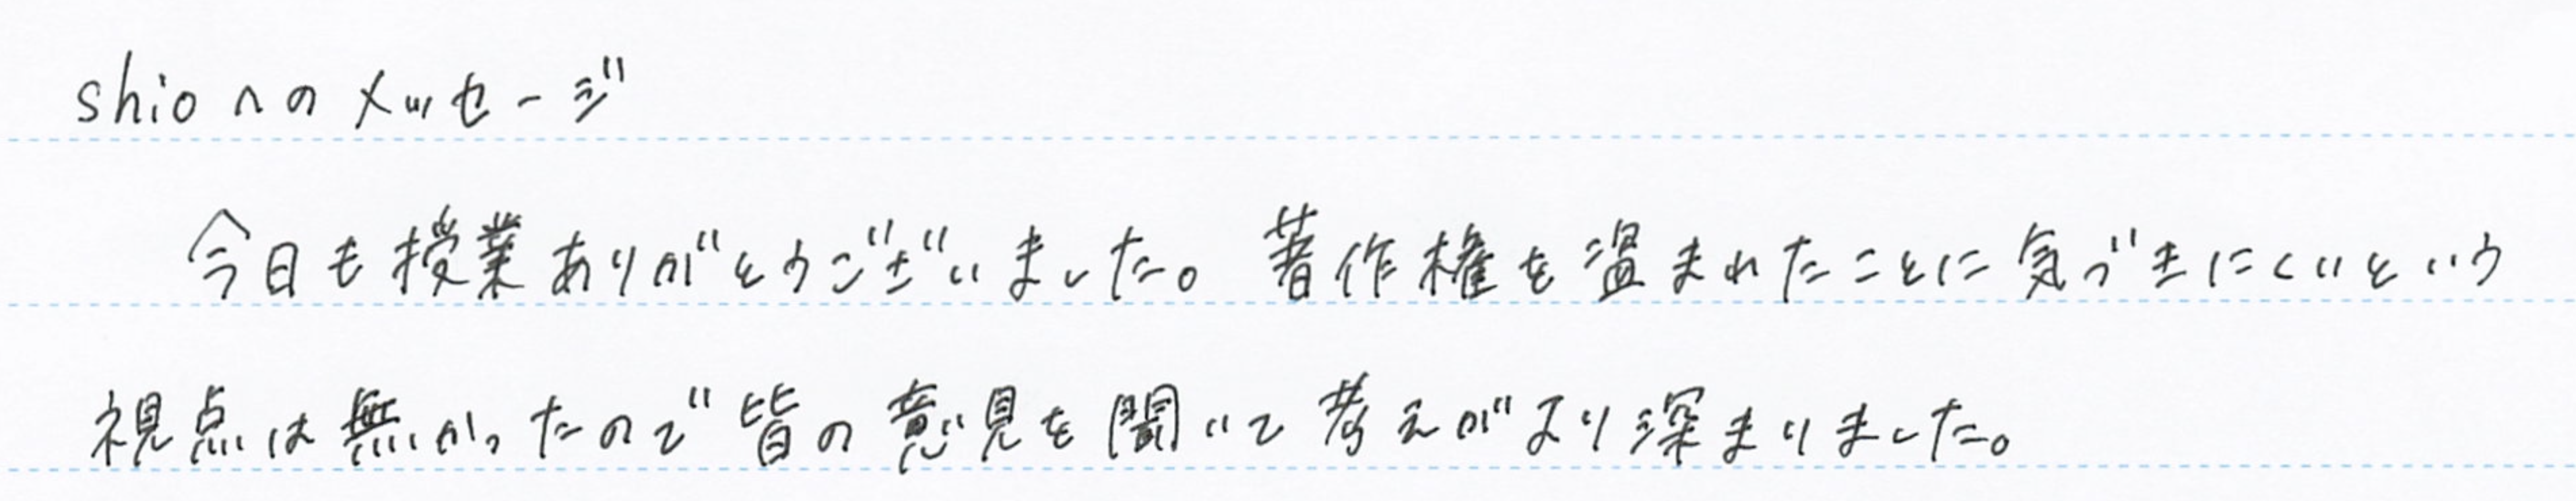 shioへのメッセージ
今日も授業ありがとうございました。著作権を盗まれたことに気づきにくいという
視点は無かったので皆の意見を聞いて考えがより深まりました。